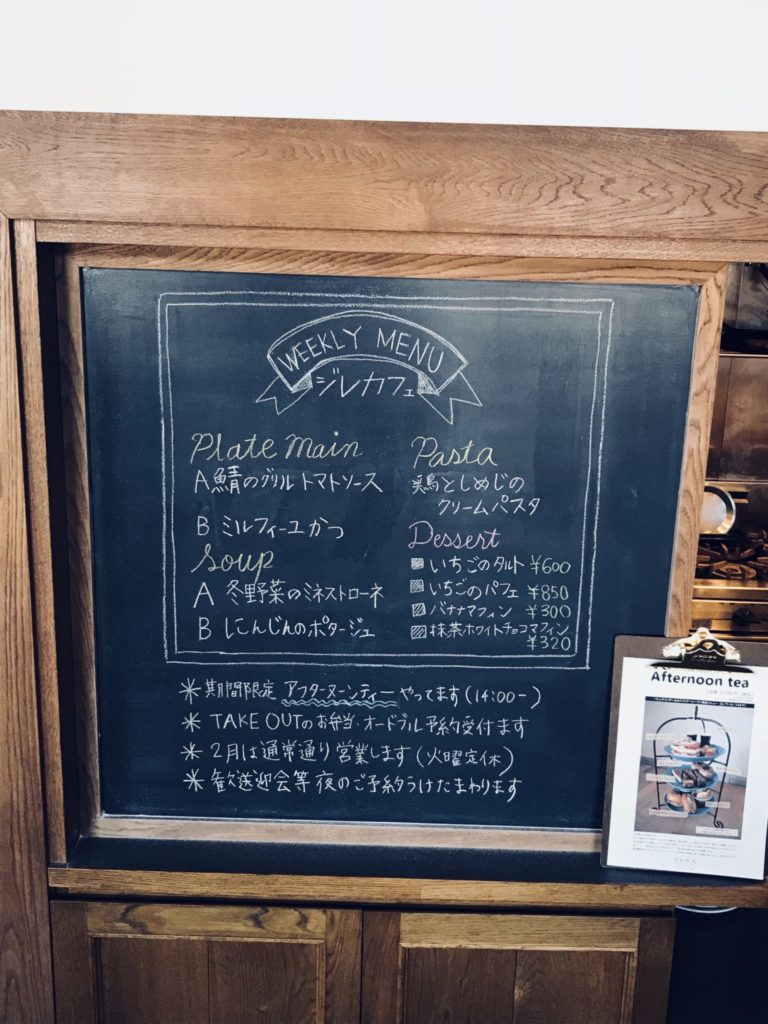 WEEKLY MENU
ジレカフェ
Plate Main
A 鯖のグリル トマトソース
B ミルフィーユかつ
Soup
A 冬野菜のミネストローネ
B にんじんのポタージュ
Pasta
鶏としめじの
クリームパスタ
Dessert
いちごのタルト ¥600
いちごのパフェ ¥850
バナナマフィン ¥300
抹茶ホワイトチョコマフィン
¥320
＊期間限定 アフタヌーンティー やってます(14:00-)
＊TAKE OUTのお弁当・オードブル予約受付ます
＊2月は通常通り営業します(火曜定休)
＊歓送迎会等夜のご予約うけたまわります
Afternoon tea